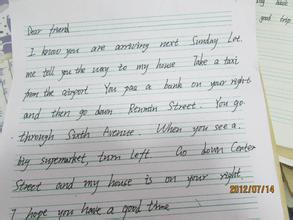 Dear friend
I know you are arriving next Sunday Let
me tell you the way to my house Take a taxi
from the airport You pas a bank on your right
and then go down Street. You go
through Sixth Avenue. When you see a
big supermarket, turn left Go down Center
Street and my house is on your right,
I hope you have a good time
good trip
2012/07/14